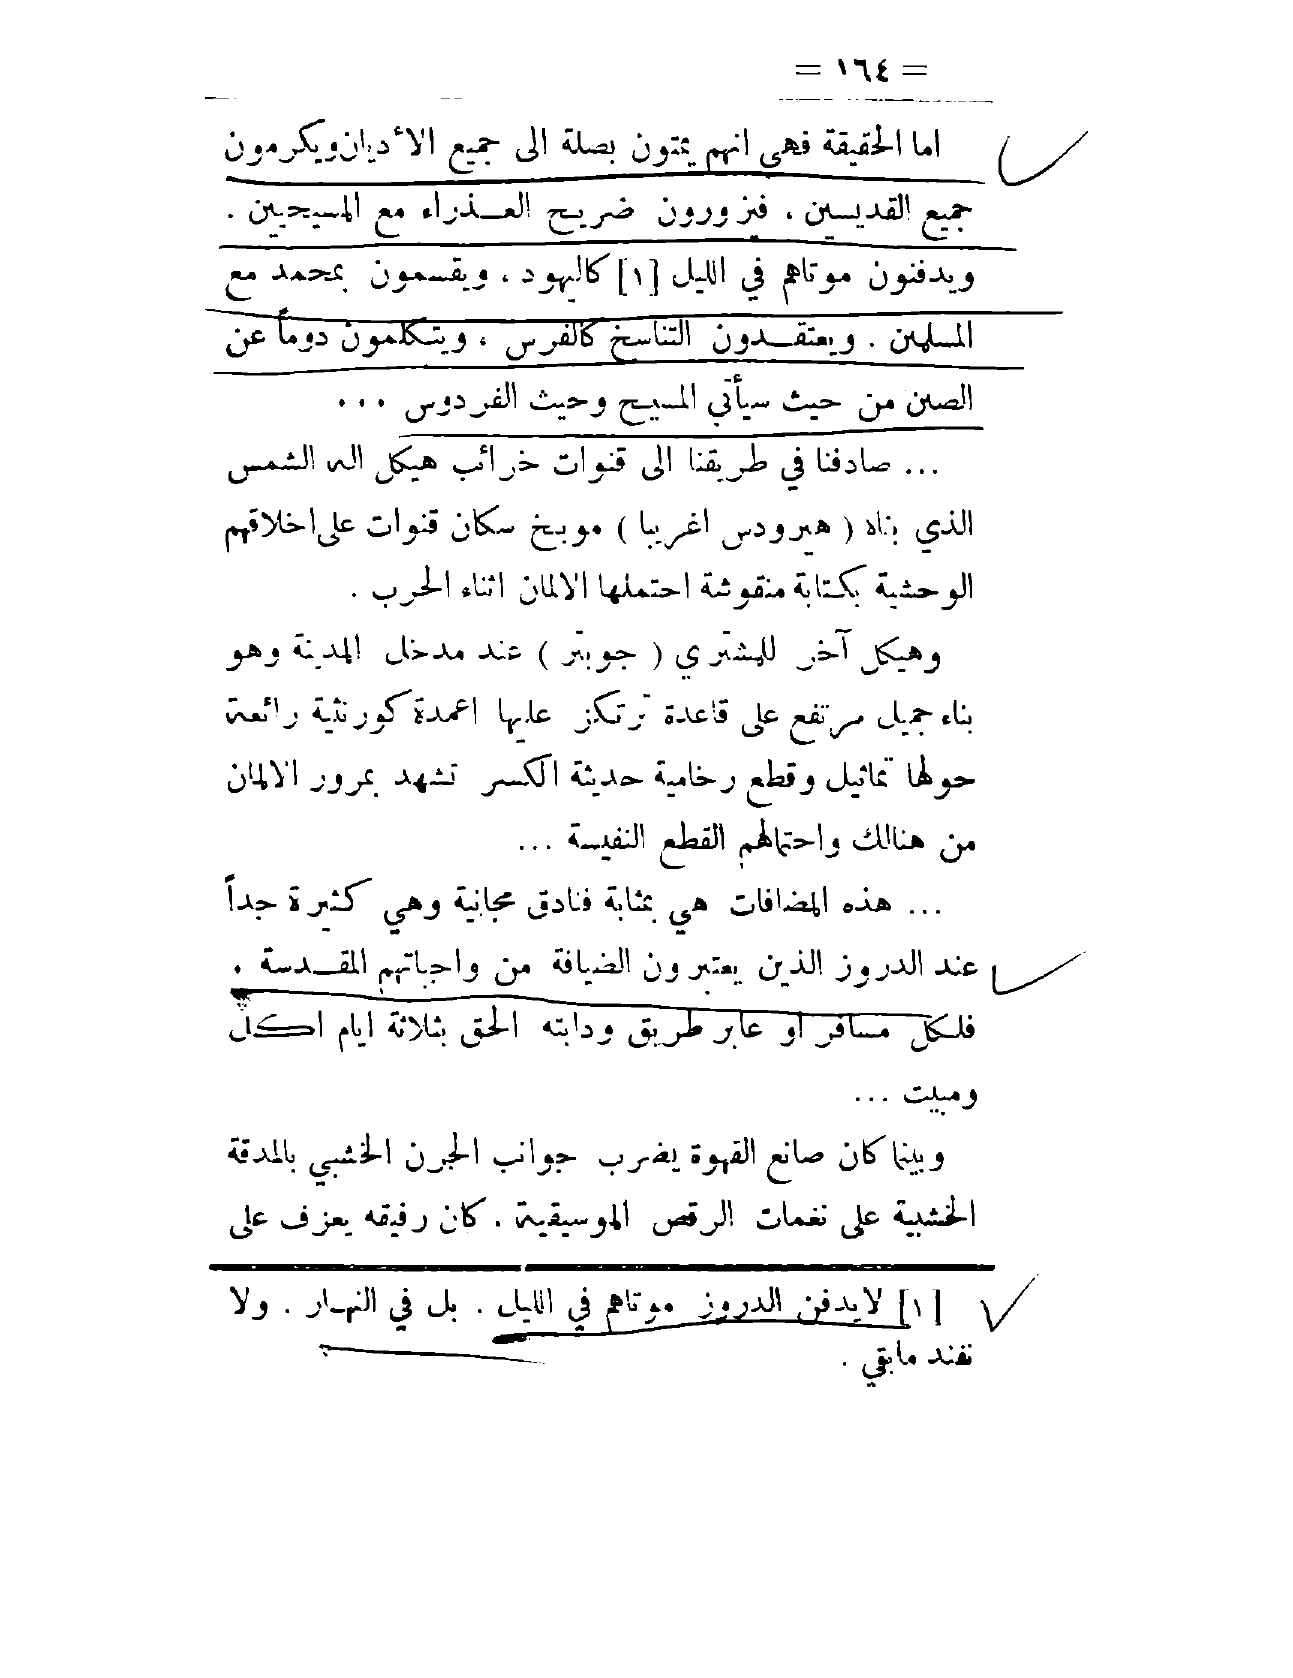 = ١٦٤ =
اما الحقيقة فهي انهم يمتون بصلة الى جميع الأديان ويكرمون
جميع القديسين ، فيزورون ضريح العـذراء مع المسيحيين .
ويدفنون موتاهم في الليل [١] كاليهود ، ويقسمون بمحمد مع
المسلمين . ويعتقـدون التناسخ كالفرس ، ويتكلمون دوماً عن
الصين من حيث سيأتي المسيح وحيث الفردوس ...
... صادفنا في طريقنا الى قنوات خرائب هيكل اله الشمس
الذي بناه ( هيرودس اغريبا ) موبخ سكان قنوات على اخلاقهم
الوحشية بكتابة منقوشة احتملها الالمان اثناء الحرب .
وهيكل آخر للمشتري ( جوبتر ) عند مدخل المدينة وهو
بناء جميل مرتفع على قاعدة ترتكز عليها اعمدة كورنثية رائعة
حولها تماثيل وقطع رخامية حديثة الكسر تشهد بمرور الالمان
من هنالك واحتمالهم القطع النفيسة ...
... هذه المضافات هي بمثابة فنادق مجانية وهي كثيرة جداً
عند الدروز الذين يعتبرون الضيافة من واجباتهم المقـدسة .
فلكل مسافر او عابر طريق ودابته الحق بثلاثة ايام اكل
ومبيت ...
وبينما كان صانع القهوة يضرب جوانب الجرن الخشبي بالمدقة
الخشبية على نغمات الرقص الموسيقية ، كان رفيقه يعزف على
[١] لا يدفن الدروز موتاهم في الليل . بل في النهـار . ولا
نفند مابقي .